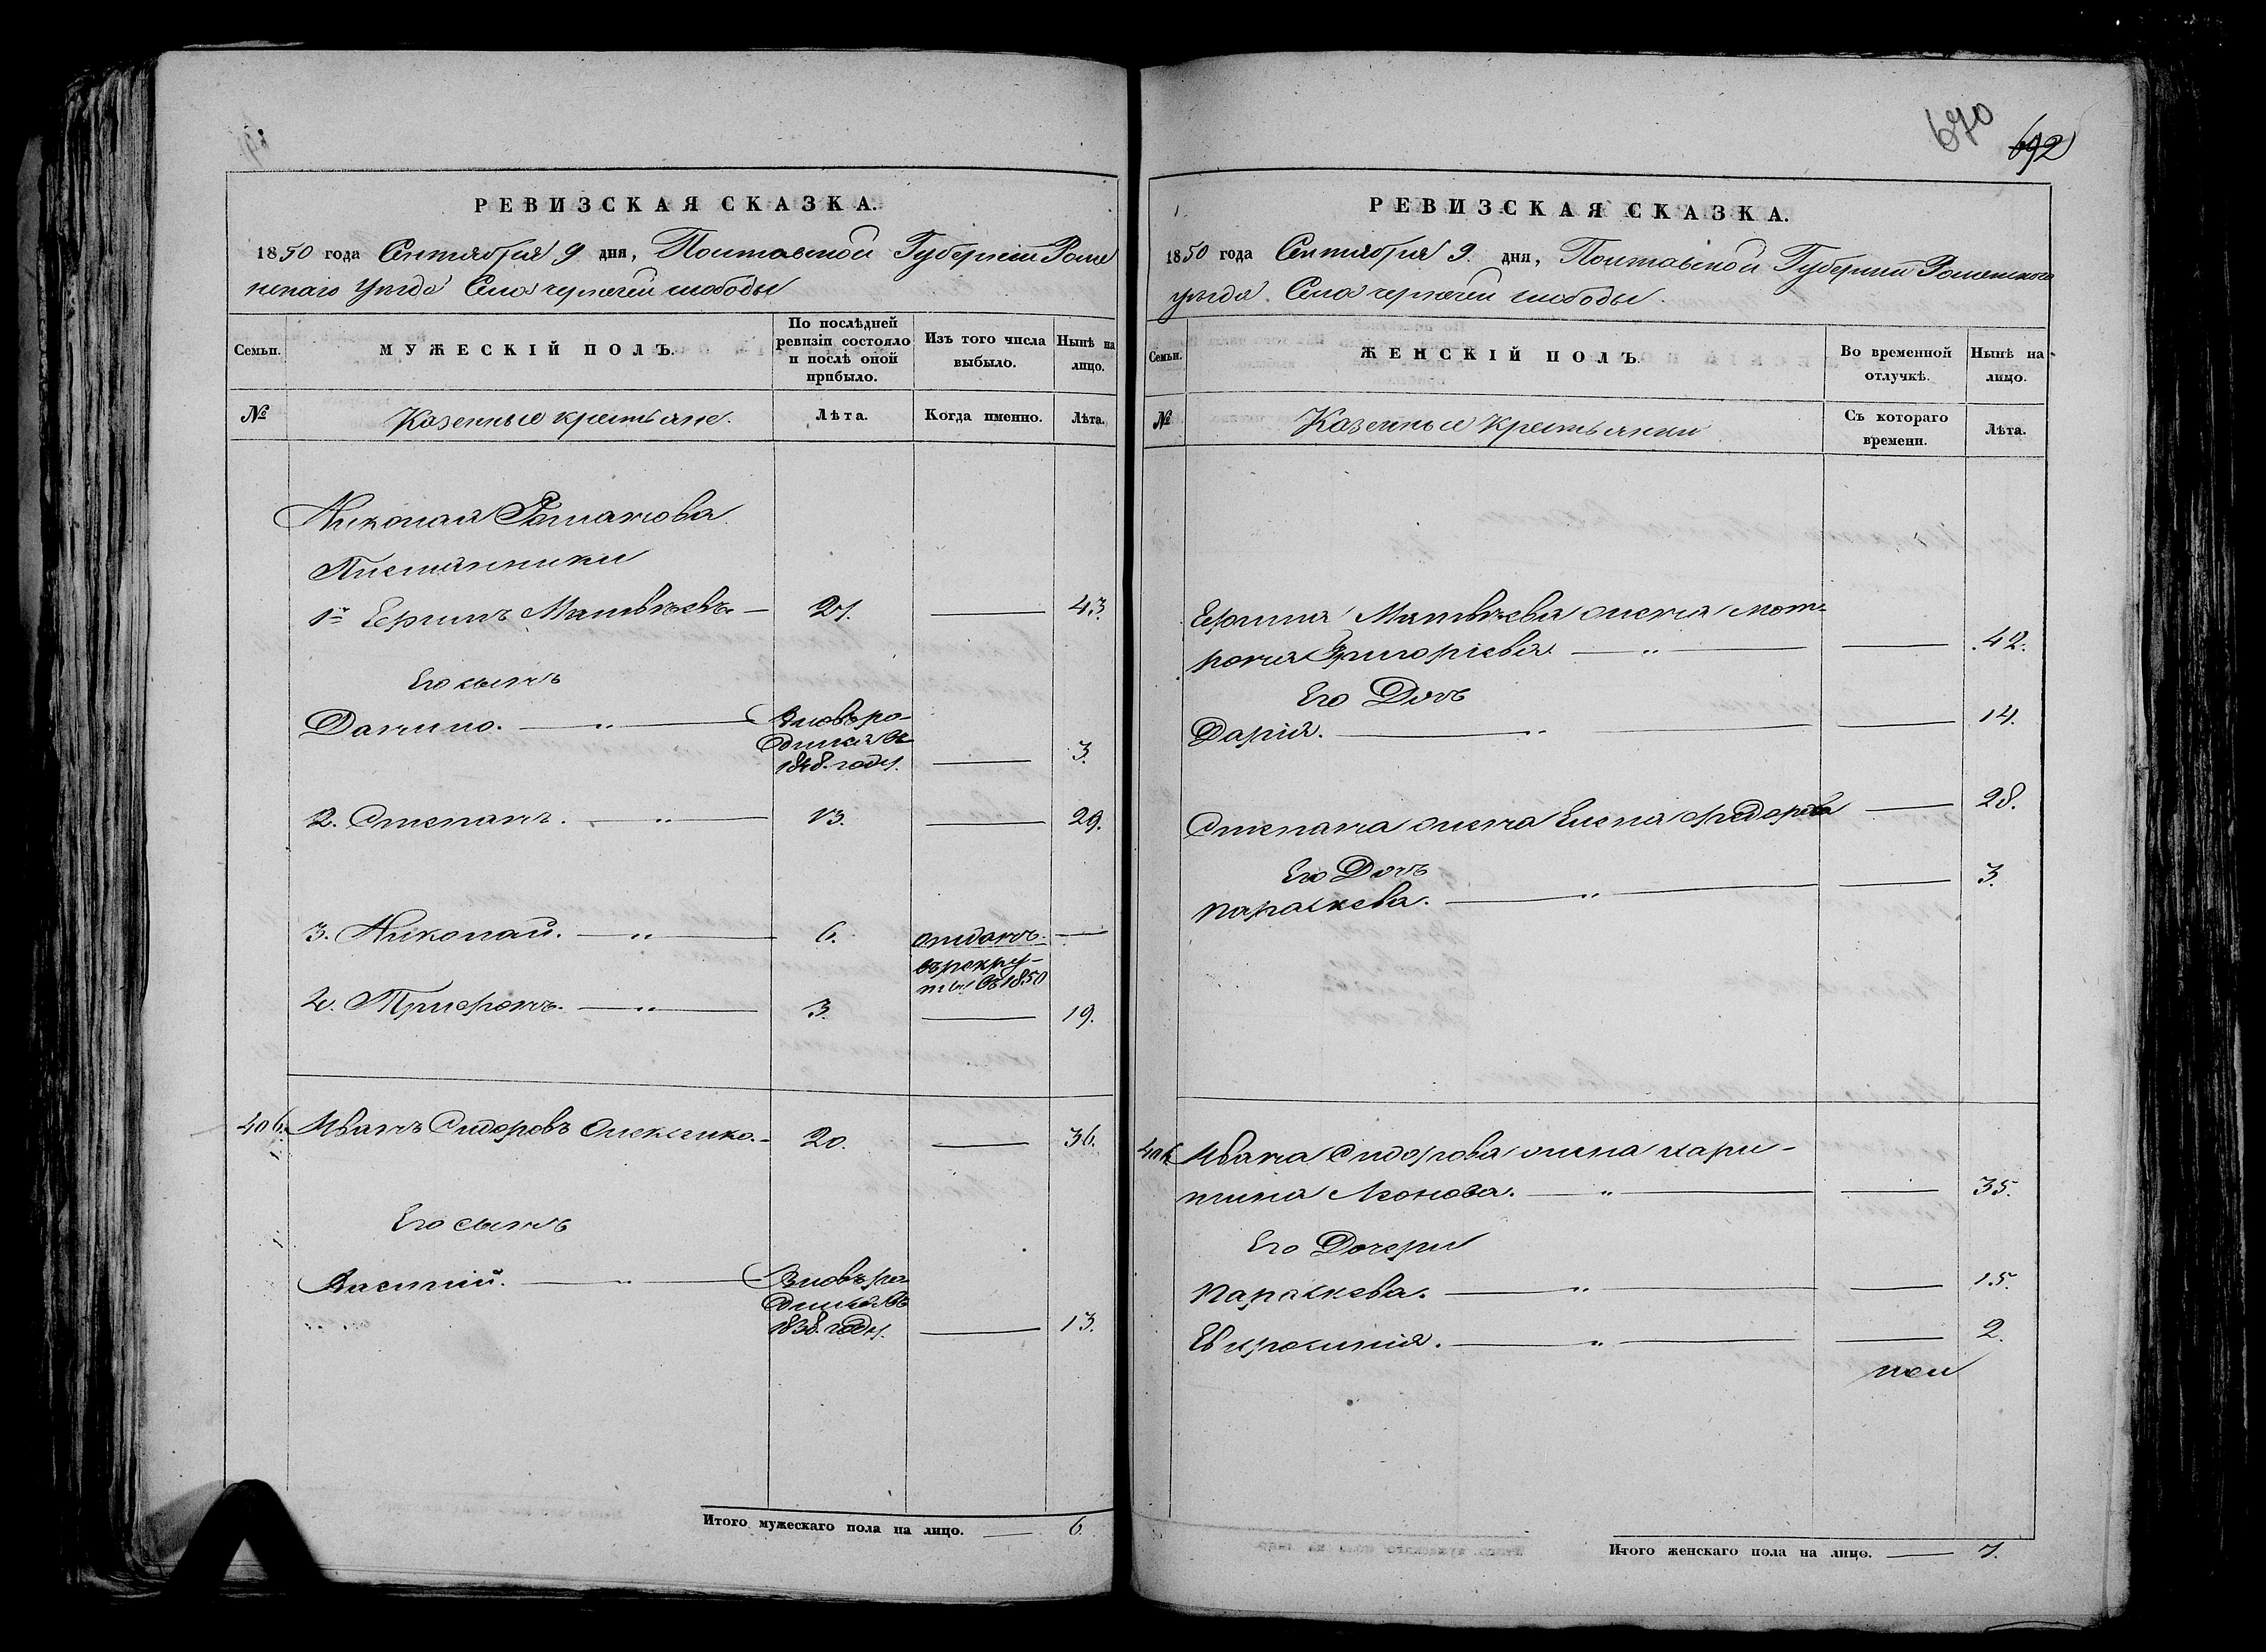 РЕВИЗСКАЯ СКАЗКА.
1850 года Сентября 9 дня, Полтавской Губерніи Роме
нскаго Уѣзда Села чернечей слободы
Семьи.
МУЖЕСКІЙ ПОЛЪ.
По послѣдней ревизіи состояло и послѣ оной прибыло.
Изъ того числа выбыло.
Нынѣ на лицо.
№
Казенные крестьяне.
Лѣта.
Когда именно.
Лѣта.
Николая Романова
Племянники
1й Ефимъ Матвѣевъ — 27. — 43.
Его сынъ
Данило. — „ — Вновь ро-
дился въ
1848. году. — 3.
2. Степанъ. — „ — 13. — 29.
3. Николай. — „ — 6. отданъ —
въ рекру-
ты въ 1850
4. Трифонъ. — „ — 3. — 19.
406. Иванъ Сидоровъ Олексенко. — 20. — 36.
Его сынъ
Василий. — „ — Вновь ро-
дился въ
1838. году. — 13.
Итого мужескаго пола на лицо. — 6
670
692
РЕВИЗСКАЯ СКАЗКА.
1850 года Сентября 9. дня, Полтавской Губерніи Роменскаго
уѣзда. Села чернечей слободы.
Семьи.
ЖЕНСКІЙ ПОЛЪ.
Во временной отлучкѣ.
Нынѣ на лицо.
№
Казенные Крестьянки
Съ котораго времени.
Лѣта.
Ефима Матвѣева жена Мот-
рона Григоріева. — „ — — 42.
Его Дочь
Дарія. — „ — — 14.
Степана жена Елена Федорова — 28.
Его Дочь
Параскева. — „ — — 3.
406. Ивана Сидорова жена хари-
тина Леонова. — „ — — 35.
Его Дочери
Параскева. — „ — — 15.
Евфросинія. — „ — — 2.
Итого женскаго пола на лицо. — 7.